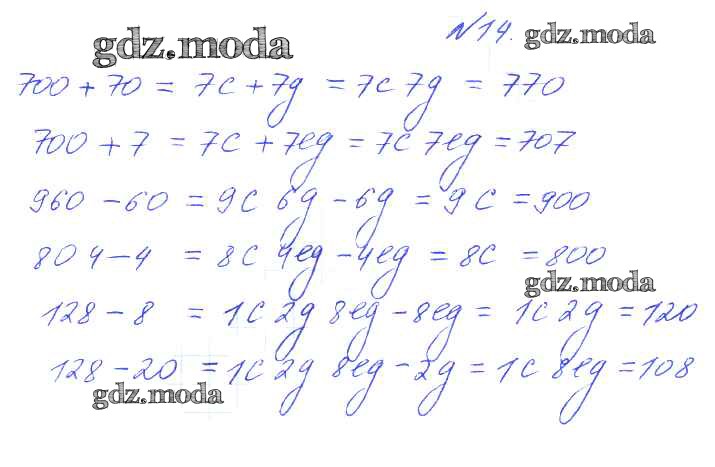 gdz.moda №14. gdz.moda
700 + 70 = 7с + 7д = 7с 7д = 770
700 + 7 = 7с + 7ед = 7с 7ед = 707
960 - 60 = 9с 6д - 6д = 9с = 900
804 - 4 = 8с 4ед - 4ед = 8с = 800
gdz.moda
128 - 8 = 1с 2д 8ед - 8ед = 1с 2д = 120
128 - 20 = 1с 2д 8ед - 2д = 1с 8ед = 108
gdz.moda